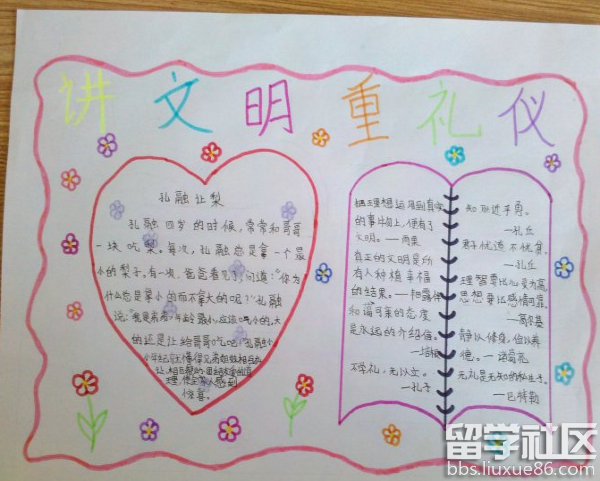 讲文明重礼仪
孔融让梨
孔融四岁的时候，常常和哥哥
一块吃梨。每次，孔融总是拿一个最
小的梨子。有一次，爸爸看见了，问道："你为
什么总是拿小的而不拿大的呢？"孔融
说："我是弟弟，年龄最小，应该吃小的，大
的还是让给哥哥吃吧！"孔融小
把理想运用到真实
的事物上，便有了
文明。——雨果
真正的文明是所
有人种植幸福
的结果。
和蔼可亲的态度
是永远的介绍信。
不学礼，无以立。
——孔子
知耻近乎勇。
——孔丘
君子忧道不忧贫。
——孔丘
理智要比心灵为高，
思想要比感情可靠。
——高尔基
静以修身，俭以养
德。——诸葛亮
无礼是无知的私生子。
——巴特勒
留学社区
bbs.liuxue86.com